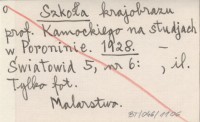 Szkoła krajobrazu
prof. Kamockiego na studjach
w Poroninie. 1928. -
Światowid 5, nr 6: , il.
Tylko fot.
Malarstwo.